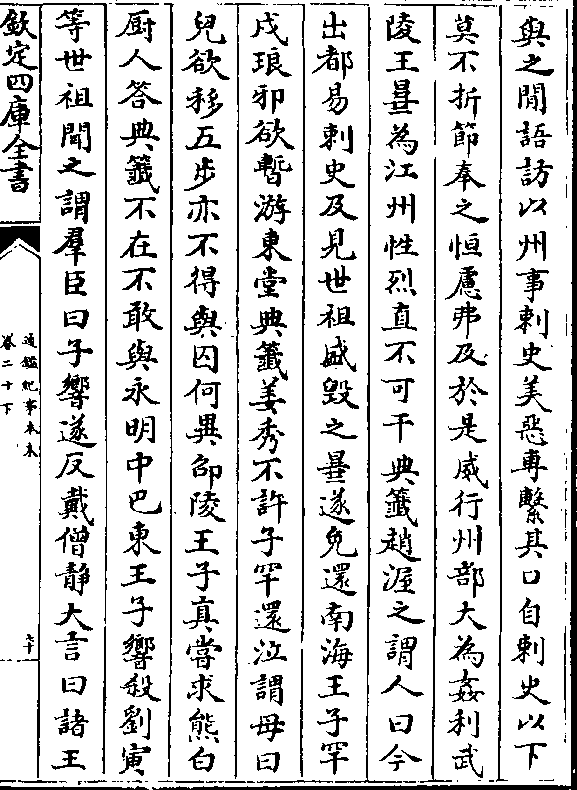 與之間語訪以州事刺史美惡專繫其口自刺史以下
莫不折節奉之恒慮弗及於是威行州部大為姦利武
陵王曅為江州性烈直不可干典籤趙渥之謂人曰今
出都易刺史及見世祖盛毁之曅遂免還南海王子罕
戍琅邪欲暫游東堂典籤姜秀不許子罕還泣謂母曰
兒欲移五步亦不得與囚何異邵陵王子真嘗求熊白
厨人答典籤不在不敢與永明中巴東王子響殺劉寅
等世祖聞之謂羣臣曰子響遂反戴僧静大言曰諸王
欽定四庫全書
通鑑紀事本末
卷二十下